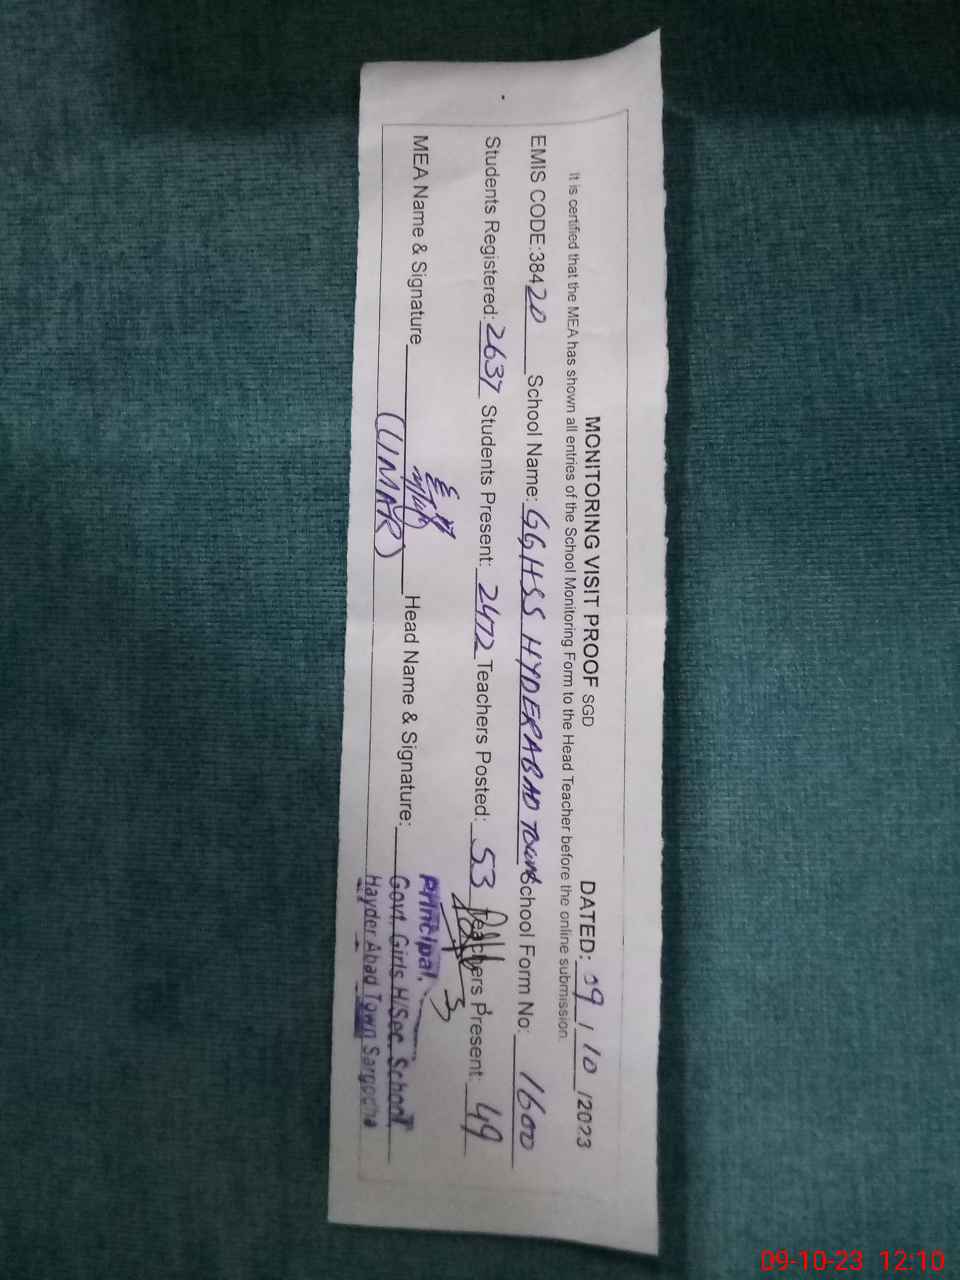 MONITORING VISIT PROOF SGD DATED: 09 / 10 /2023
It is certified that the MEA has shown all entries of the School Monitoring Form to the Head Teacher before the online submission.
EMIS CODE:38420 School Name: GGHSS HYDERABAD TOWN School Form No: 1600
Students Registered: 2637 Students Present: 2472 Teachers Posted: 53 Teachers Present: 49
MEA Name & Signature (UMAR) Head Name & Signature:
Principal.
Govt. Girls H/Sec School
Hayder Abad Town Sargodha
09-10-23 12:10